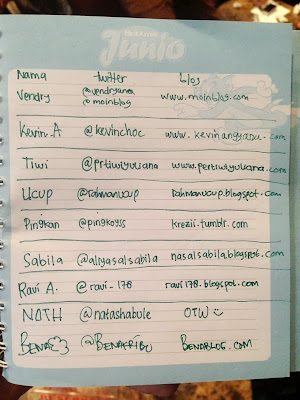 Junio
Nama twitter blog
Vendry @vendryana www.moinblog.com
@moinblog
Kevin.A @kevinchoc www.kevinangyasa.com
Tiwi @prtiwiyuliana www.pertiwiyuliana.com
Ucup @rahmanucup rahmanucup.blogspot.com
Pingkan @pingkoyss krezii.tumblr.com
Sabila @aliyasalsabila nasalsabila.blogspot.com
Ravi A. @ravi_178 ravi178.blogspot.com
NATH @natashabule OTW
BENA @BENAKRIBO BENABLOG.COM